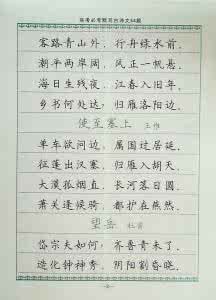 高考必考默写古诗文64篇
客路青山外，行舟绿水前。
潮平两岸阔，风正一帆悬。
海日生残夜，江春入旧年。
乡书何处达，归雁洛阳边。
使至塞上 王维
单车欲问边，属国过居延。
征蓬出汉塞，归雁入胡天。
大漠孤烟直，长河落日圆。
萧关逢候骑，都护在燕然。
望岳 杜甫
岱宗夫如何，齐鲁青未了。
造化钟神秀，阴阳割昏晓。